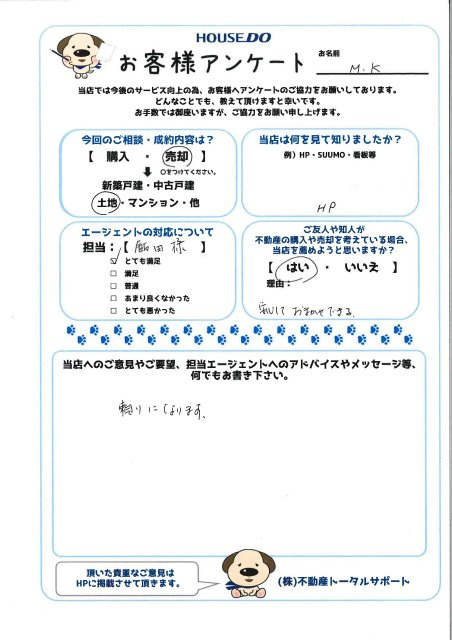 HOUSEDO
お客様アンケート
お名前
M.K
当店では今後のサービス向上の為、お客様へアンケートのご協力をお願いしております。
どんなことでも、教えて頂けますと幸いです。
お手数では御座いますが、ご協力をお願い申し上げます。
今回のご相談・成約内容は?
【 購入 ・ 売却 】
○をつけてください。
新築戸建・中古戸建
土地・マンション・他
当店は何を見て知りましたか?
例)HP・SUUMO・看板等
HP
エージェントの対応について
担当:【 飯田様 】
☑ とても満足
□ 満足
□ 普通
□ あまり良くなかった
□ とても悪かった
ご友人や知人が
不動産の購入や売却を考えている場合、
当店を薦めようと思いますか?
【 はい ・ いいえ 】
理由:
安心して お任せできる。
当店へのご意見やご要望、担当エージェントへのアドバイスやメッセージ等、
何でもお書き下さい。
頼りになります。
頂いた貴重なご意見は
HPに掲載させて頂きます。
(株)不動産トータルサポート